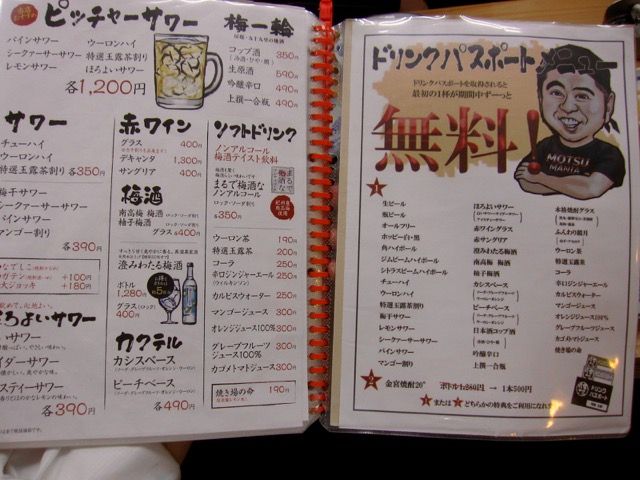 ピッチャーサワー
パインサワー
シークァーサーサワー
レモンサワー
ウーロンハイ
特選玉露茶割り
ほろよいサワー
各1,200円
梅一輪
コップ酒 350円
生原酒 590円
吟醸辛口 490円
上撰一合瓶 490円
サワー
チューハイ
ウーロンハイ
特選玉露茶割り 各350円
梅干サワー
シークァーサーサワー
パインサワー
マンゴー割り
各390円
+100円
大ジョッキ +180円
ほろよいサワー
各390円
赤ワイン
グラス 400円
デキャンタ 1,300円
サングリア 400円
梅酒
南高梅 梅酒
柚子梅酒
グラス 各400円
澄みわたる梅酒
ボトル 1,280円
グラス(ロック) 400円
カクテル
カシスベース
ピーチベース
各490円
ソフトドリンク
ノンアルコール
梅酒テイスト飲料
まるで梅酒な
ノンアルコール
各350円
ウーロン茶 190円
特選玉露茶 250円
コーラ 250円
辛口ジンジャーエール 250円
(ウィルキンソン)
カルピスウォーター 250円
マンゴージュース 300円
オレンジジュース100% 300円
グレープフルーツ
ジュース100% 300円
カゴメトマトジュース 300円
焼き場の命 190円
ドリンクパスポートメニュー
ドリンクパスポートを取得されると
最初の1杯が期間中ずーっと
無料!
MOTSU
MANIA
1
生ビール
瓶ビール
オールフリー
ホッピー白・黒
角ハイボール
ジムビームハイボール
シトラスビームハイボール
チューハイ
ウーロンハイ
特選玉露茶割り
梅干サワー
レモンサワー
シークァーサーサワー
パインサワー
マンゴー割り
ほろよいサワー
赤ワイングラス
赤サングリア
澄みわたる梅酒
南高梅 梅酒
柚子梅酒
カシスベース
ピーチベース
日本酒コップ酒
吟醸辛口
上撰一合瓶
本格焼酎グラス
ふんわり鏡月
ウーロン茶
特選玉露茶
コーラ
辛口ジンジャーエール
カルピスウォーター
マンゴージュース
オレンジジュース100%
グレープフルーツジュース
カゴメトマトジュース
焼き場の命
2 金宮焼酎20° ボトル1,860円 → 1本500円
または どちらかの特典をご利用になれます
ドリンク
パスポート